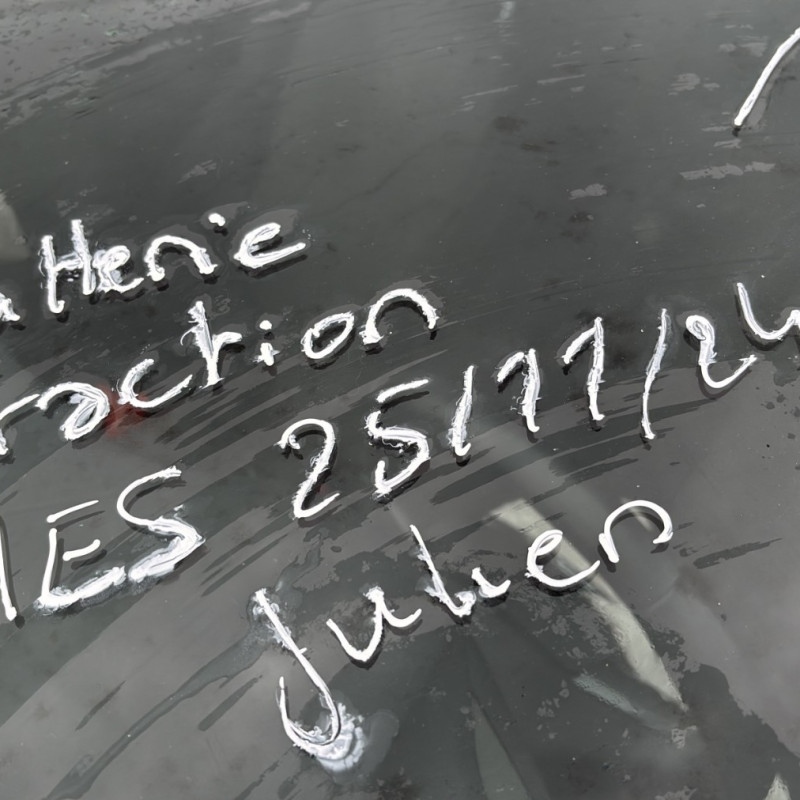 Herie
raction
IES 25/11/24
Julien